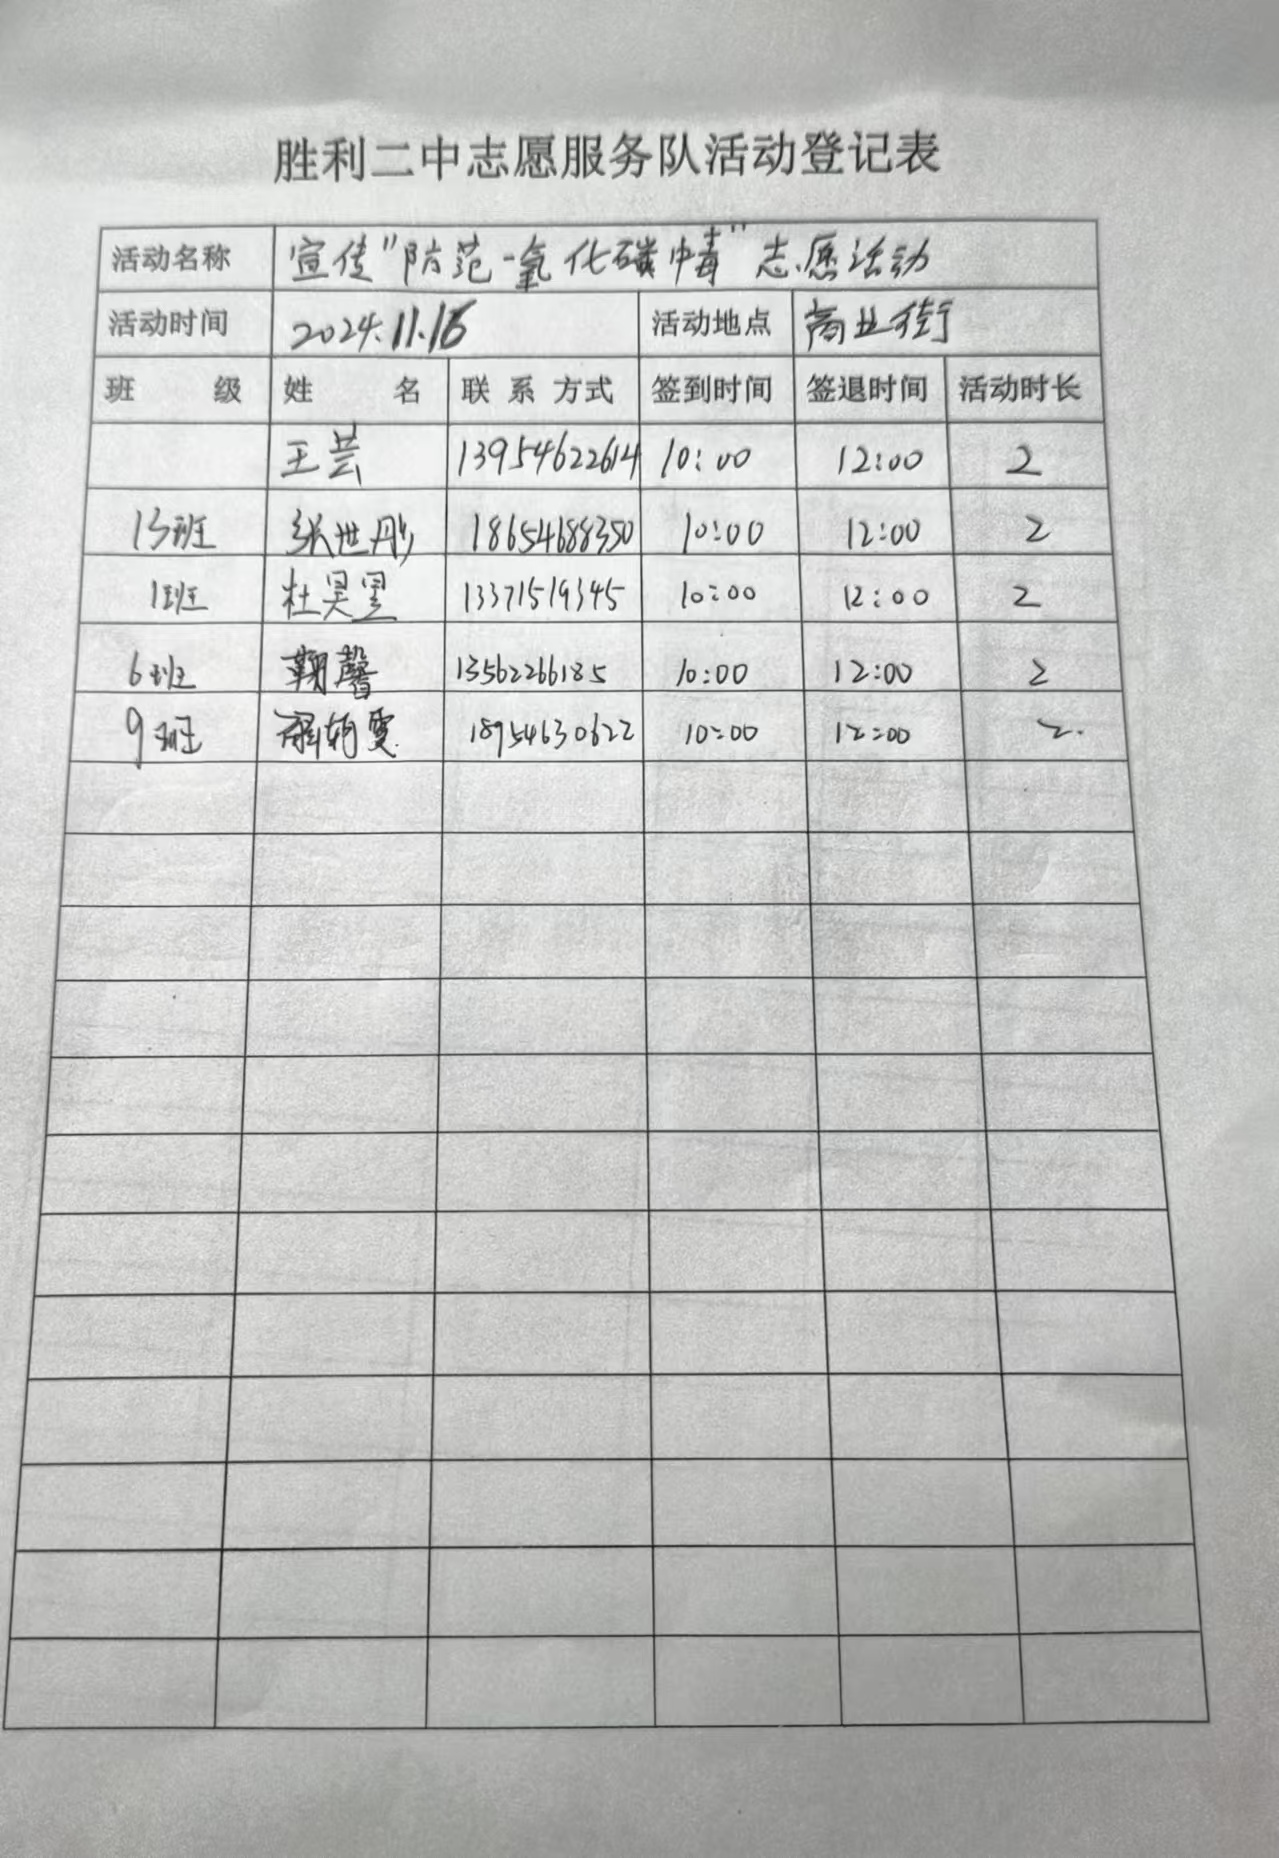 胜利二中志愿服务队活动登记表
活动名称 宣传"防范一氧化碳中毒"志愿活动
活动时间 2024.11.16 活动地点 商业街
班 级 姓 名 联 系 方式 签到时间 签退时间 活动时长
王芸 13954622614 10:00 12:00 2
13班 张世彤 18654688350 10:00 12:00 2
1班 杜昊昱 13371519345 10:00 12:00 2
6班 鞠馨 13562266185 10:00 12:00 2
9班 18954630622 10:00 12:00 2.